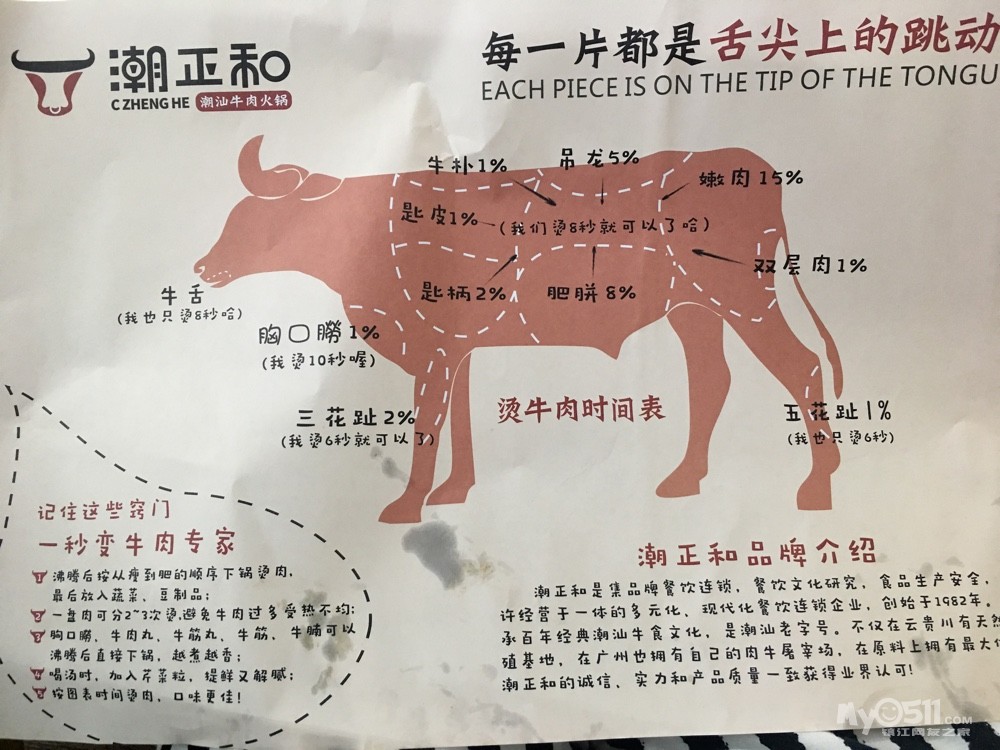 潮正和
C ZHENG HE
潮汕牛肉火锅
每一片都是舌尖上的跳动
EACH PIECE IS ON THE TIP OF THE TONGU
牛朴1%
吊龙5%
嫩肉15%
匙皮1%
(我们烫8秒就可以了哈)
双层肉1%
匙柄2%
肥胼8%
牛舌
(我也只烫8秒哈)
胸口朥1%
(我烫10秒喔)
三花趾2%
(我烫6秒就可以了)
烫牛肉时间表
五花趾1%
(我也只烫6秒)
记住这些窍门
一秒变牛肉专家
1 沸腾后按从瘦到肥的顺序下锅烫肉,
最后放入蔬菜、豆制品;
2 一盘肉可分2~3次烫,避免牛肉过多受热不均;
3 胸口朥、牛肉丸、牛筋丸、牛筋、牛腩可以
沸腾后直接下锅,越煮越香;
4 喝汤时,加入芹菜粒,提鲜又解腻;
5 按图表时间烫肉,口味更佳!
潮正和品牌介绍
潮正和是集品牌餐饮连锁,餐饮文化研究,食品生产安全,
许经营于一体的多元化、现代化餐饮连锁企业,创始于1982年。
承百年经典潮汕牛食文化,是潮汕老字号。不仅在云贵川有天然
殖基地,在广州也拥有自己的肉牛屠宰场,在原料上拥有最大
潮正和的诚信、实力和产品质量一致获得业界认可!
My0511.COM
镇江网友之家